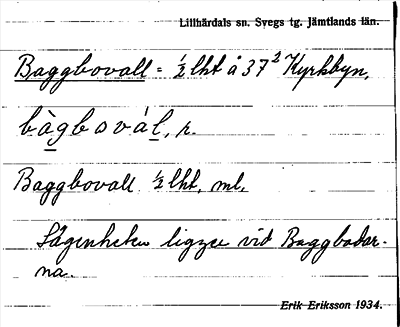 Lillhärdals sn. Svegs tg. Jämtlands län.
Baggbovall = ½ lht å 37² Kyrkbyn,
bàgbováḷ, r.
Baggbovall ½ lht, ml,
Lägenheten ligger vid Baggbodar-
na.
Erik Eriksson 1934.